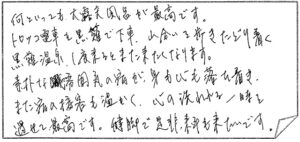 何といっても大露天風呂が最高です。
トロッコ電車を黒薙で下車、山合いを歩きたどり着く
黒薙温泉、1度来るとまた来たくなります。
素朴な雰囲気の宿が、身も心も落ち着き、
また宿の接客も温かく、心の洗われる一時を
過せて最高です。健脚で是非来年も来たいです。